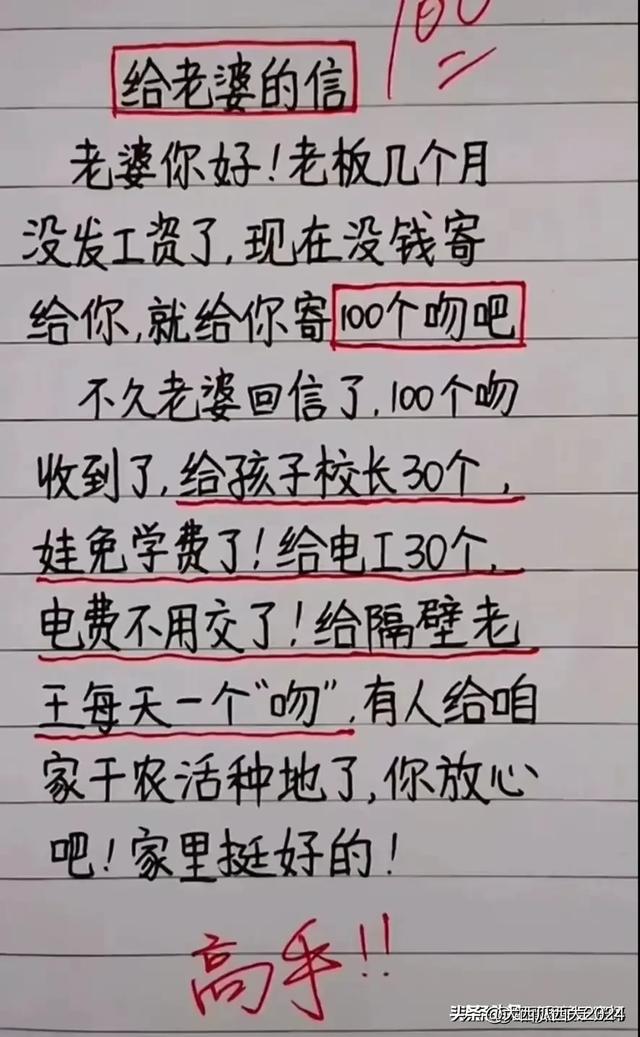 100
给老婆的信
老婆你好！老板几个月
没发工资了，现在没钱寄
给你，就给你寄100个吻吧
不久老婆回信了，100个吻
收到了，给孩子校长30个，
娃免学费了！给电工30个，
电费不用交了！给隔壁老
王每天一个“吻”，有人给咱
家干农活种地了，你放心
吧！家里挺好的！
高手!!
头条 @大西瓜西大2024